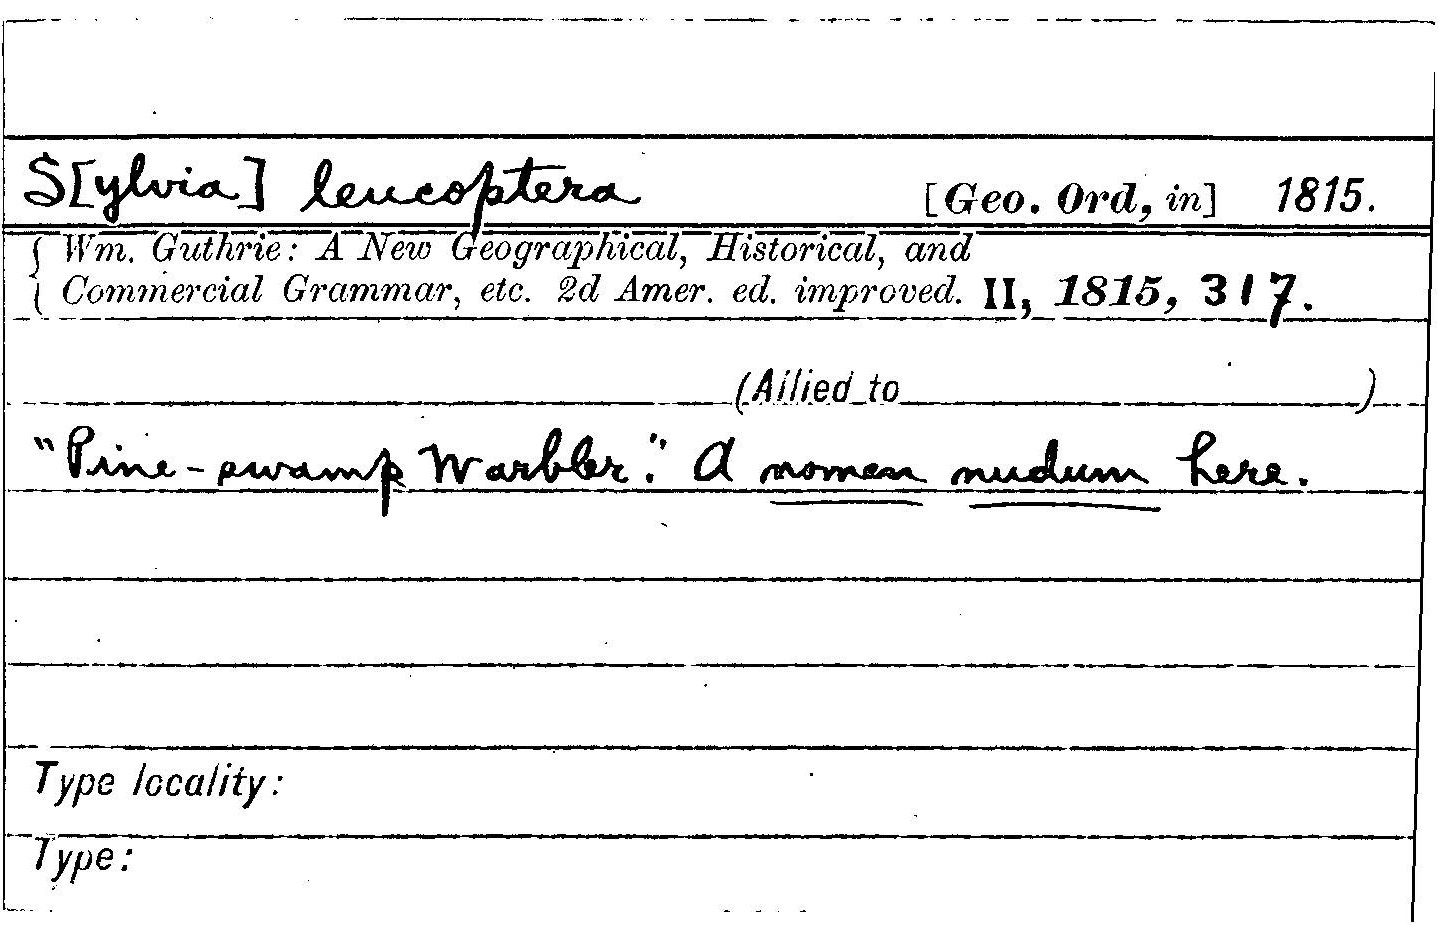 S[ylvia] leucoptera [Geo. Ord, in] 1815.
{ Wm. Guthrie: A New Geographical, Historical, and
{ Commercial Grammar, etc. 2d Amer. ed. improved. II, 1815, 317.
(Allied to )
"Pine-swamp Warbler." A nomen nudum here.
Type locality:
Type: